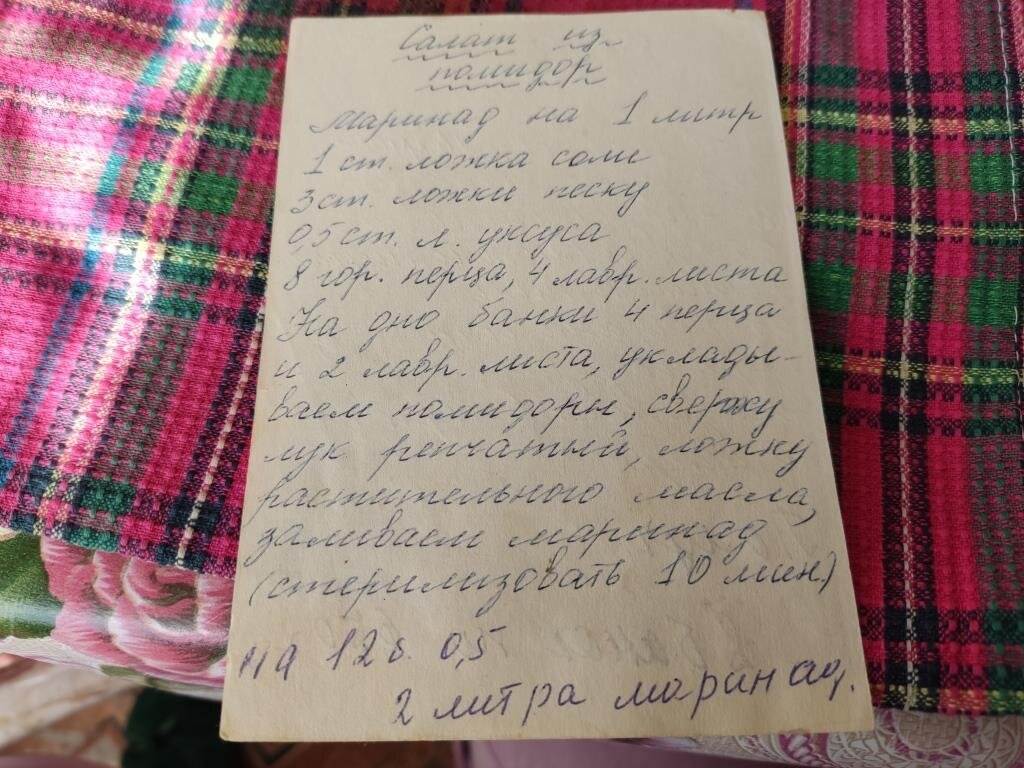 Салат из
помидор
Маринад на 1 литр
1 ст. ложка соли
3 ст. ложки песку
0,5 ст. л. уксуса
8 гор. перца, 4 лавр. листа
На дно банки 4 перца
и 2 лавр. листа, уклады-
ваем помидоры, сверху
лук репчатый, ложку
растительного масла,
заливаем маринад
(стерилизовать 10 мин.)
на 12 б. 0,5
2 литра маринад.